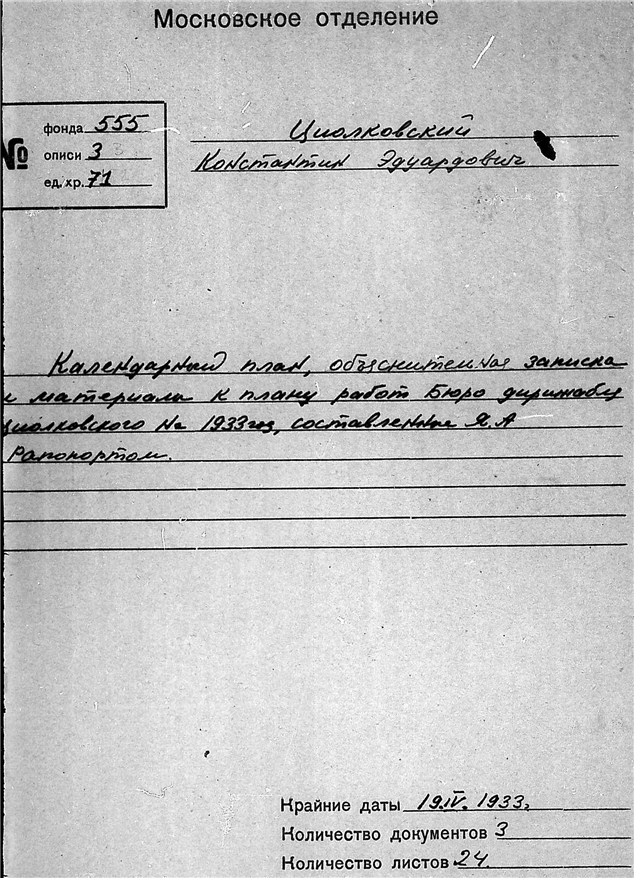 Московское отделение
№
фонда 555
описи 3
ед. хр. 71
Циолковский
Константин Эдуардович
Календарный план, объяснительная записка
и материалы к плану работ Бюро дирижабля
Циолковского на 1933 год, составленные Я.А
Рапопортом.
Крайние даты 19.IV. 1933г.
Количество документов 3
Количество листов 24.